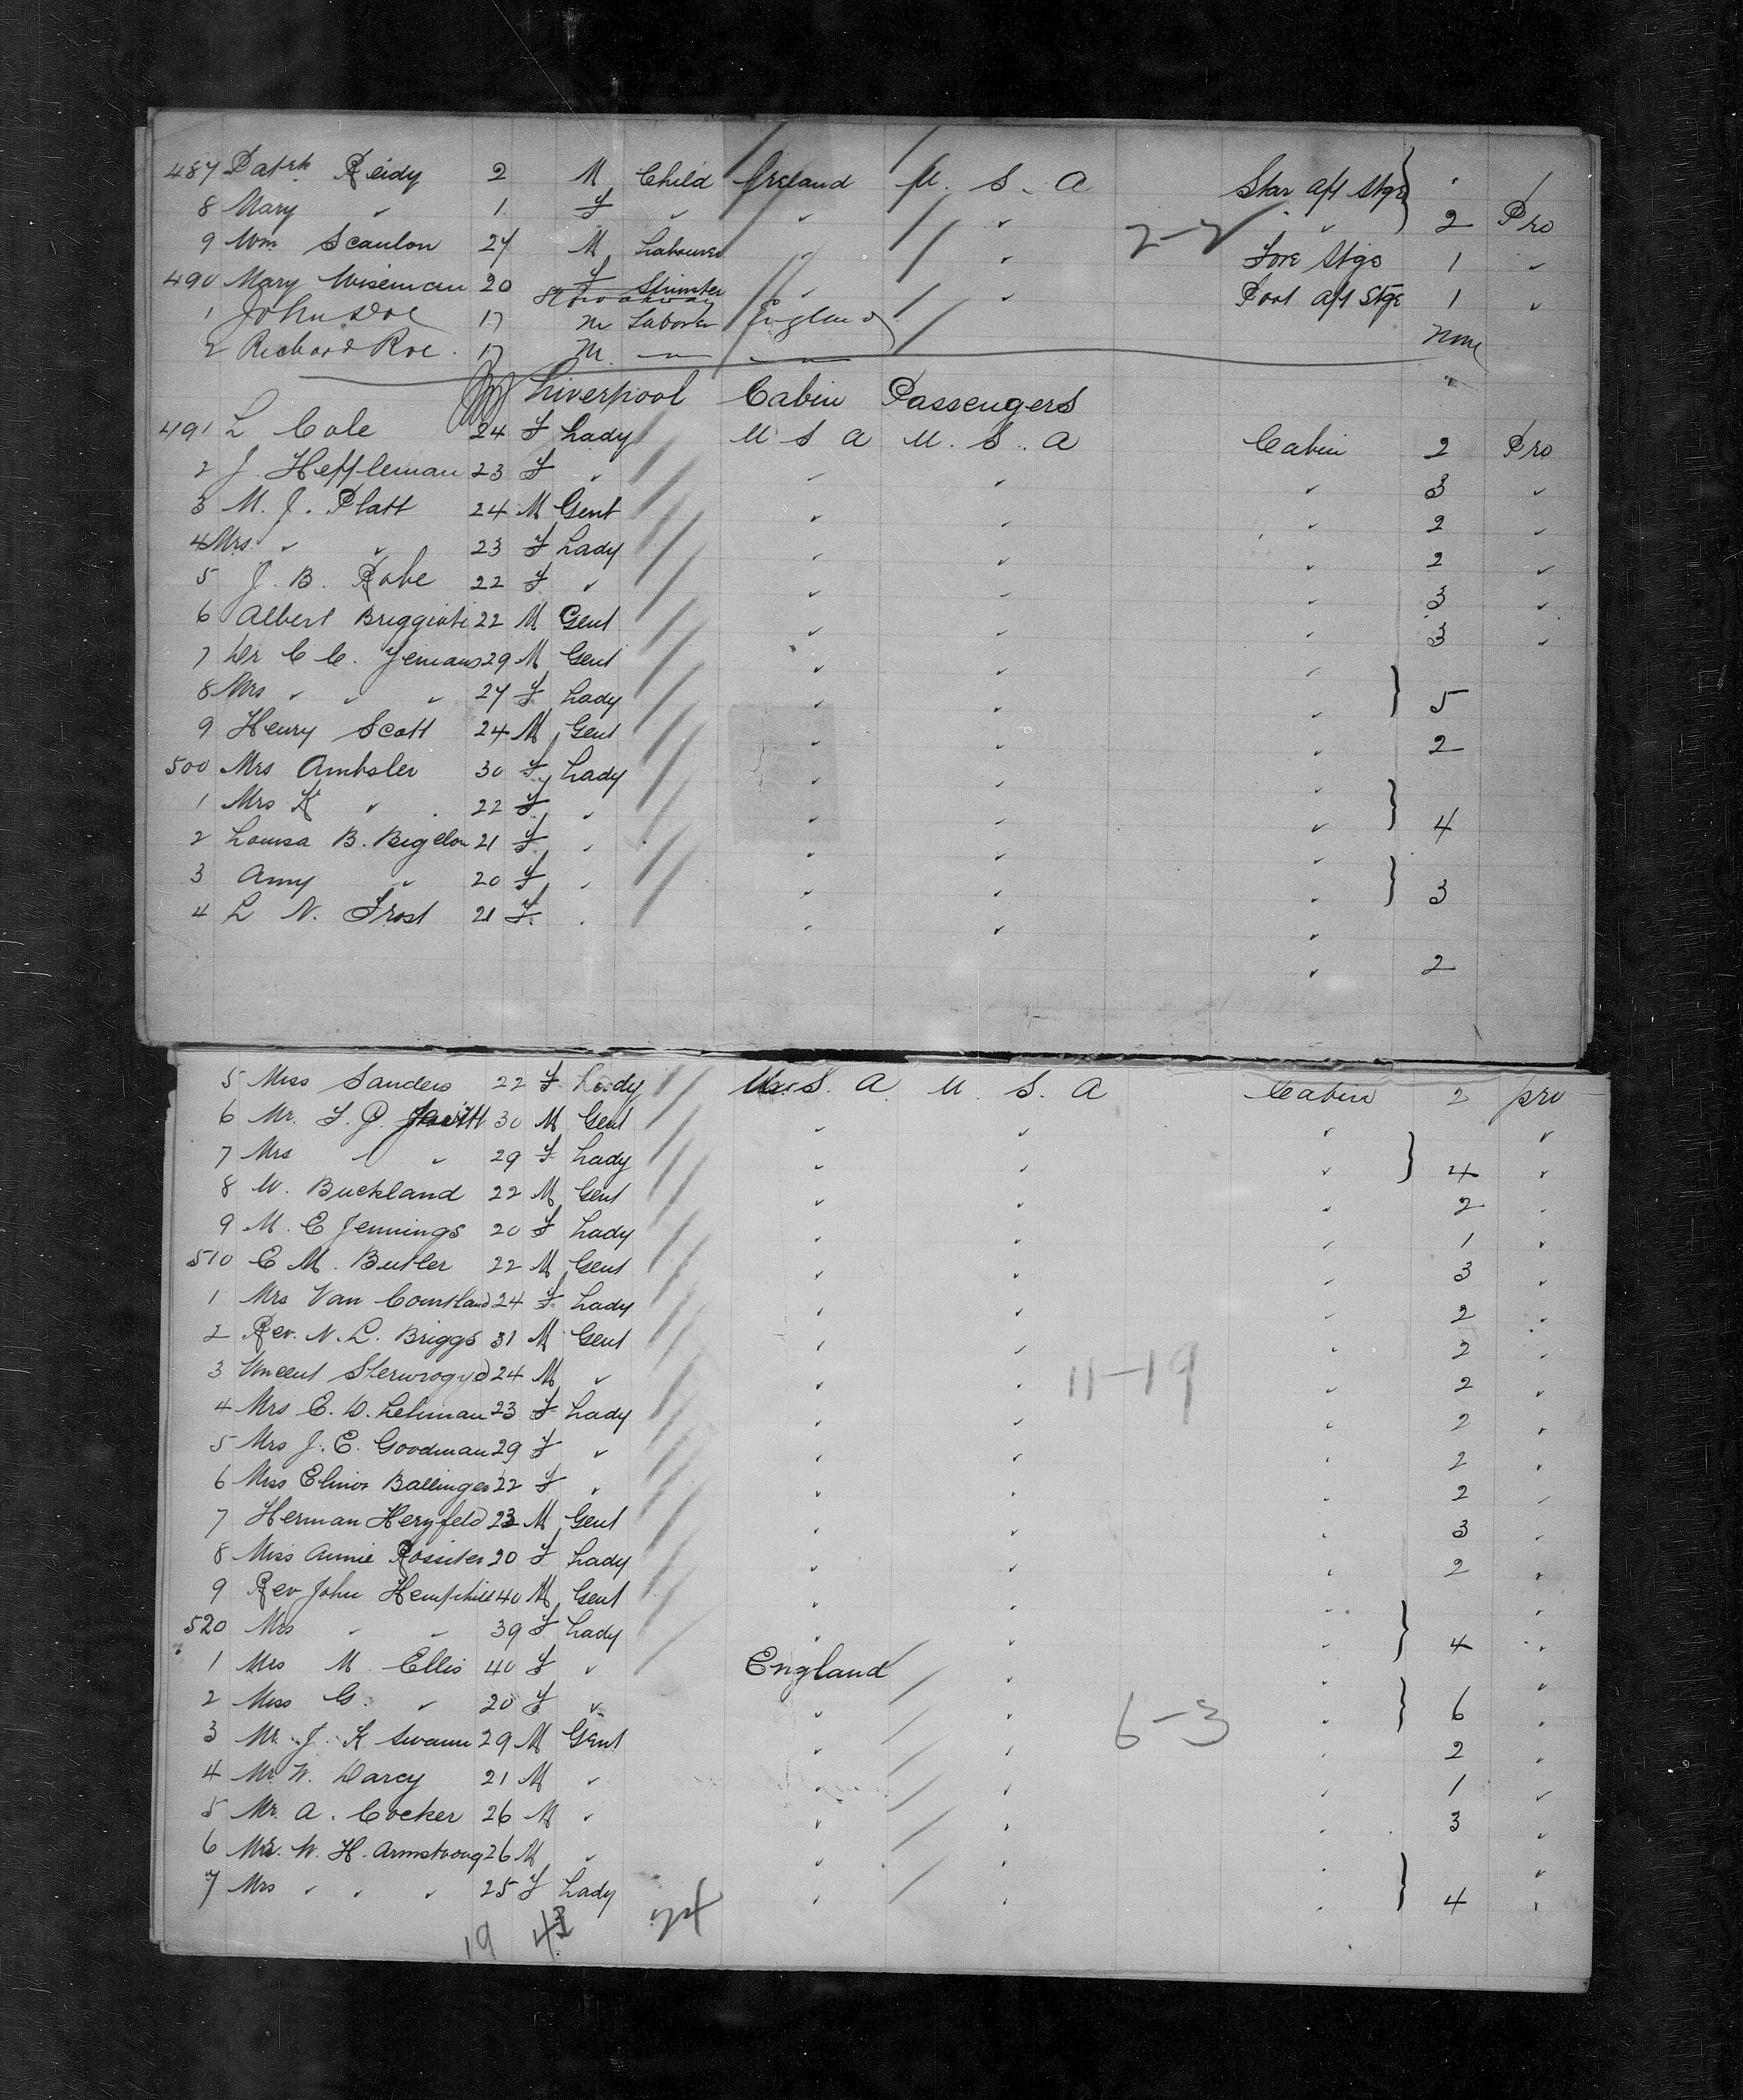 487 Patrk Reidy 2 M Child Ireland U. S. A Star aft Stge "
8 Mary " 1 F " " " " 2 Pro
9 Wm Scanlon 27 M Labourer " " 2-2 Fore Stge 1 "
490 Mary Wiseman 20 F Spinster " " Port aft Stge 1 "
Stowaway
1 John Doe 17 M Laborer England None
2 Richard Roe 17 M " " "
Liverpool Cabin Passengers
491 L Cole 24 F Lady U S A U. S. A Cabin 2 Pro
2 J. Heffleman 23 F " " " " 3 "
3 M. J. Platt 24 M Gent " " " 2 "
4 Mrs " " 23 F Lady " " " 2 "
5 J. B. Robe 22 F " " " " 3 "
6 Albert 22 M Gent " " " 3 "
7 Dr C. C. Yemans 29 M Gent " " "
8 Mrs " " " 27 F Lady " " " 5
9 Henry Scott 24 M Gent " " " 2
500 Mrs Ambsler 30 F Lady " " "
1 Mrs K " 22 F " " " " 4
2 Louisa B. Bigelow 21 F " " " "
3 Amy " 20 F " " " " 3
4 L N. Frost 21 F " " " " 2
5 Miss Sanders 22 F Lady U. S. A. U. S. A Cabin 2 pro
6 Mr. 30 M Gent " " " "
7 Mrs " " 29 F Lady " " " 4 "
8 W. Buckland 22 M Gent " " " 2 "
9 M. E Jennings 20 F Lady " " " 1 "
510 C M. Butler 22 M Gent " " " 3 "
1 Mrs Van Courtland 24 F Lady " " " 2 "
2 Rev. N. L. Briggs 31 M Gent " " " 2 "
3 Vincent 24 M " " " 11-19 " 2 "
4 Mrs E. D. Lehman 23 F Lady " " " 2 "
5 Mrs J. E. Goodman 29 F " " " " 2 "
6 Miss Elinor Ballinger 22 F " " " " 2 "
7 Herman Heryfeld 23 M Gent " " " 3 "
8 Miss Annie Rossiter 20 F Lady " " " 2 "
9 Rev John Hemphill 40 M Gent " " " "
520 Mrs " " 39 F Lady " " " 4 "
1 Mrs M. Ellis 40 F " England " " "
2 Miss G. " 20 F " " " 6-3 " 6 "
3 Mr. J. K Swann 29 M Gent " " " 2 "
4 Mr W. Darcy 21 M " " " " 1 "
5 Mr. A. Cocker 26 M " " " " 3 "
6 Mr. W. H. Armstrong 26 M " " " " "
7 Mrs " " " 25 F Lady " " " 4 "
19